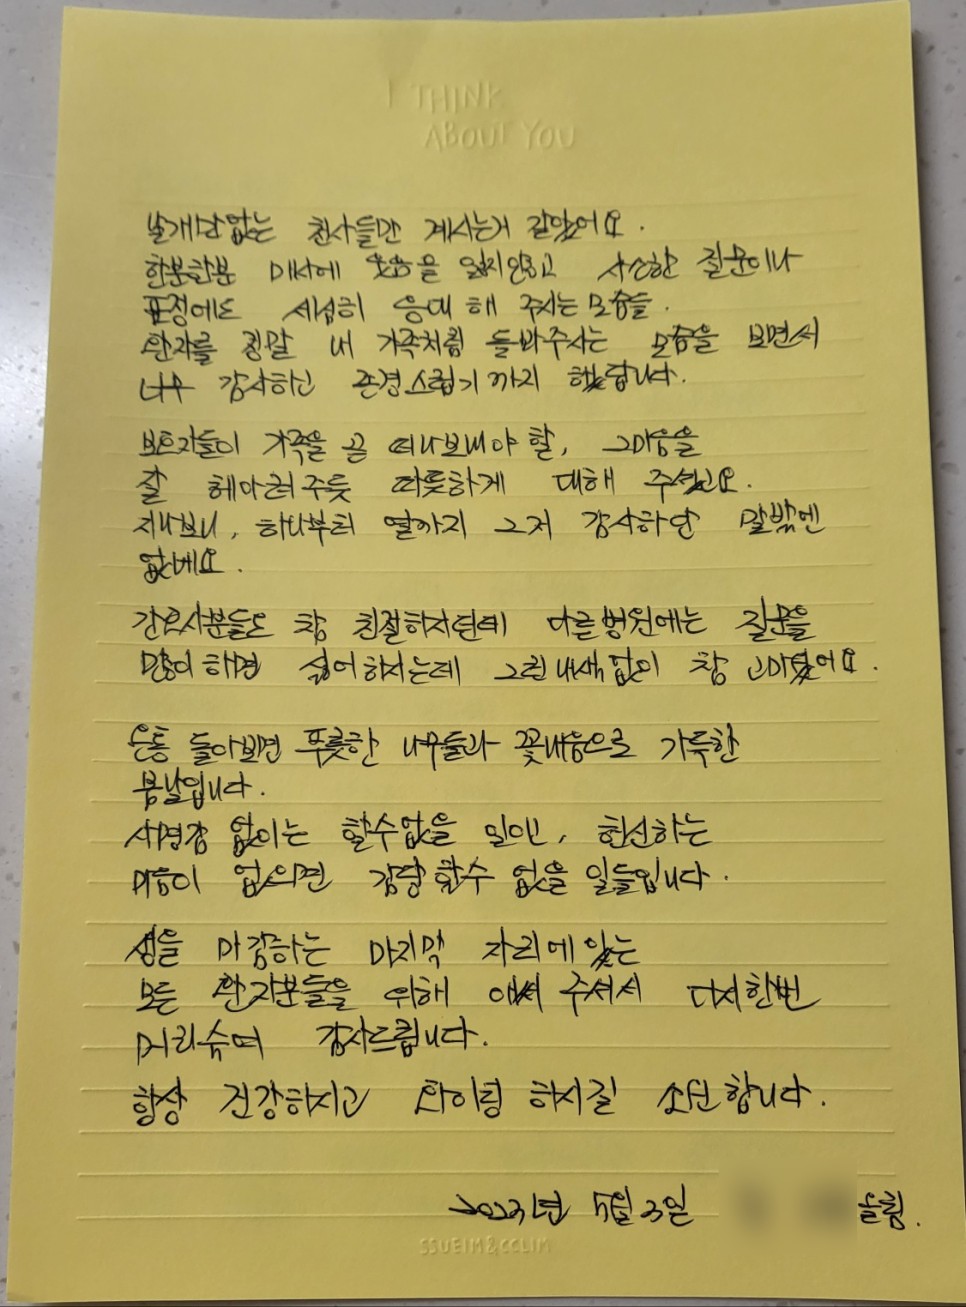 I THINK
ABOUT YOU
날개만없는 천사들만 계시는거 같았어요.
한분한분 매사에 웃음을 잃지않고 사소한 질문이나
표정에도 세심히 응대 해 주시는 모습들.
환자를 정말 내 가족처럼 돌봐주시는 모습을 보면서
너무 감사하고 존경스럽기까지 했답니다.
보호자들이 가족을 곧 떠나보내야 할, 그마음을
잘 헤아려주듯 따뜻하게 대해 주셨고요.
지나보니, 하나부터 열까지 그저 감사하단 말밖엔
없네요.
간호사분들도 참 친절하시던데 다른병원에는 질문을
많이하면 싫어하시는데 그런내색없이 참 고마웠어요.
온통 둘아보면 푸릇한 나무들과 꽃내음으로 가득한
봄날입니다.
사명감 없이는 할수없을 일이고, 헌신하는
마음이 없으면 감당할수 없을 일들입니다.
생을 마감하는 마지막 자리에있는
모든 환자분들을 위해 애써 주셔서 다시한번
머리숙여 감사드립니다.
항상 건강하시고 화이팅 하시길 소원합니다.
2023년 5월 3일 올림.
SSUEIM&CCLIM